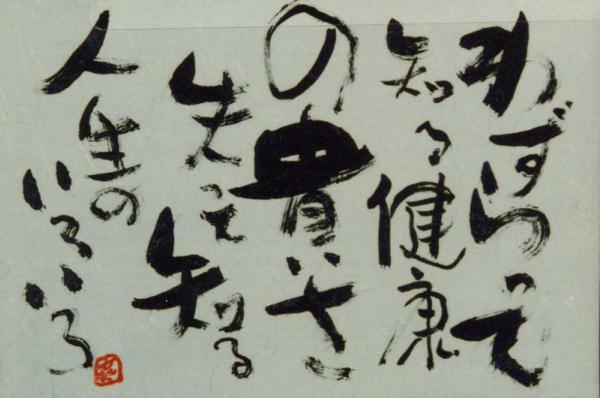 わずらって
知る健康
の貴さ
失って知る
人生の
いろいろ